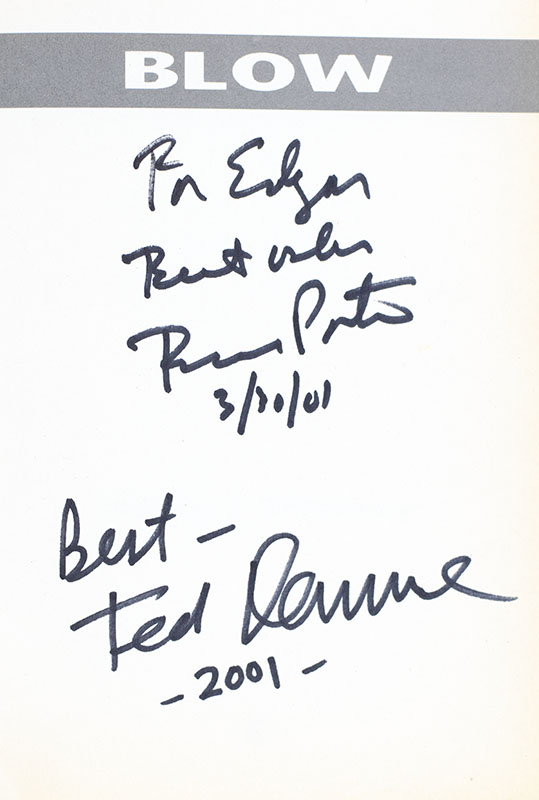 BLOW
For Edgar
Best wishes
Bruce Porter
3/30/01
Best -
Ted Demme
- 2001 -